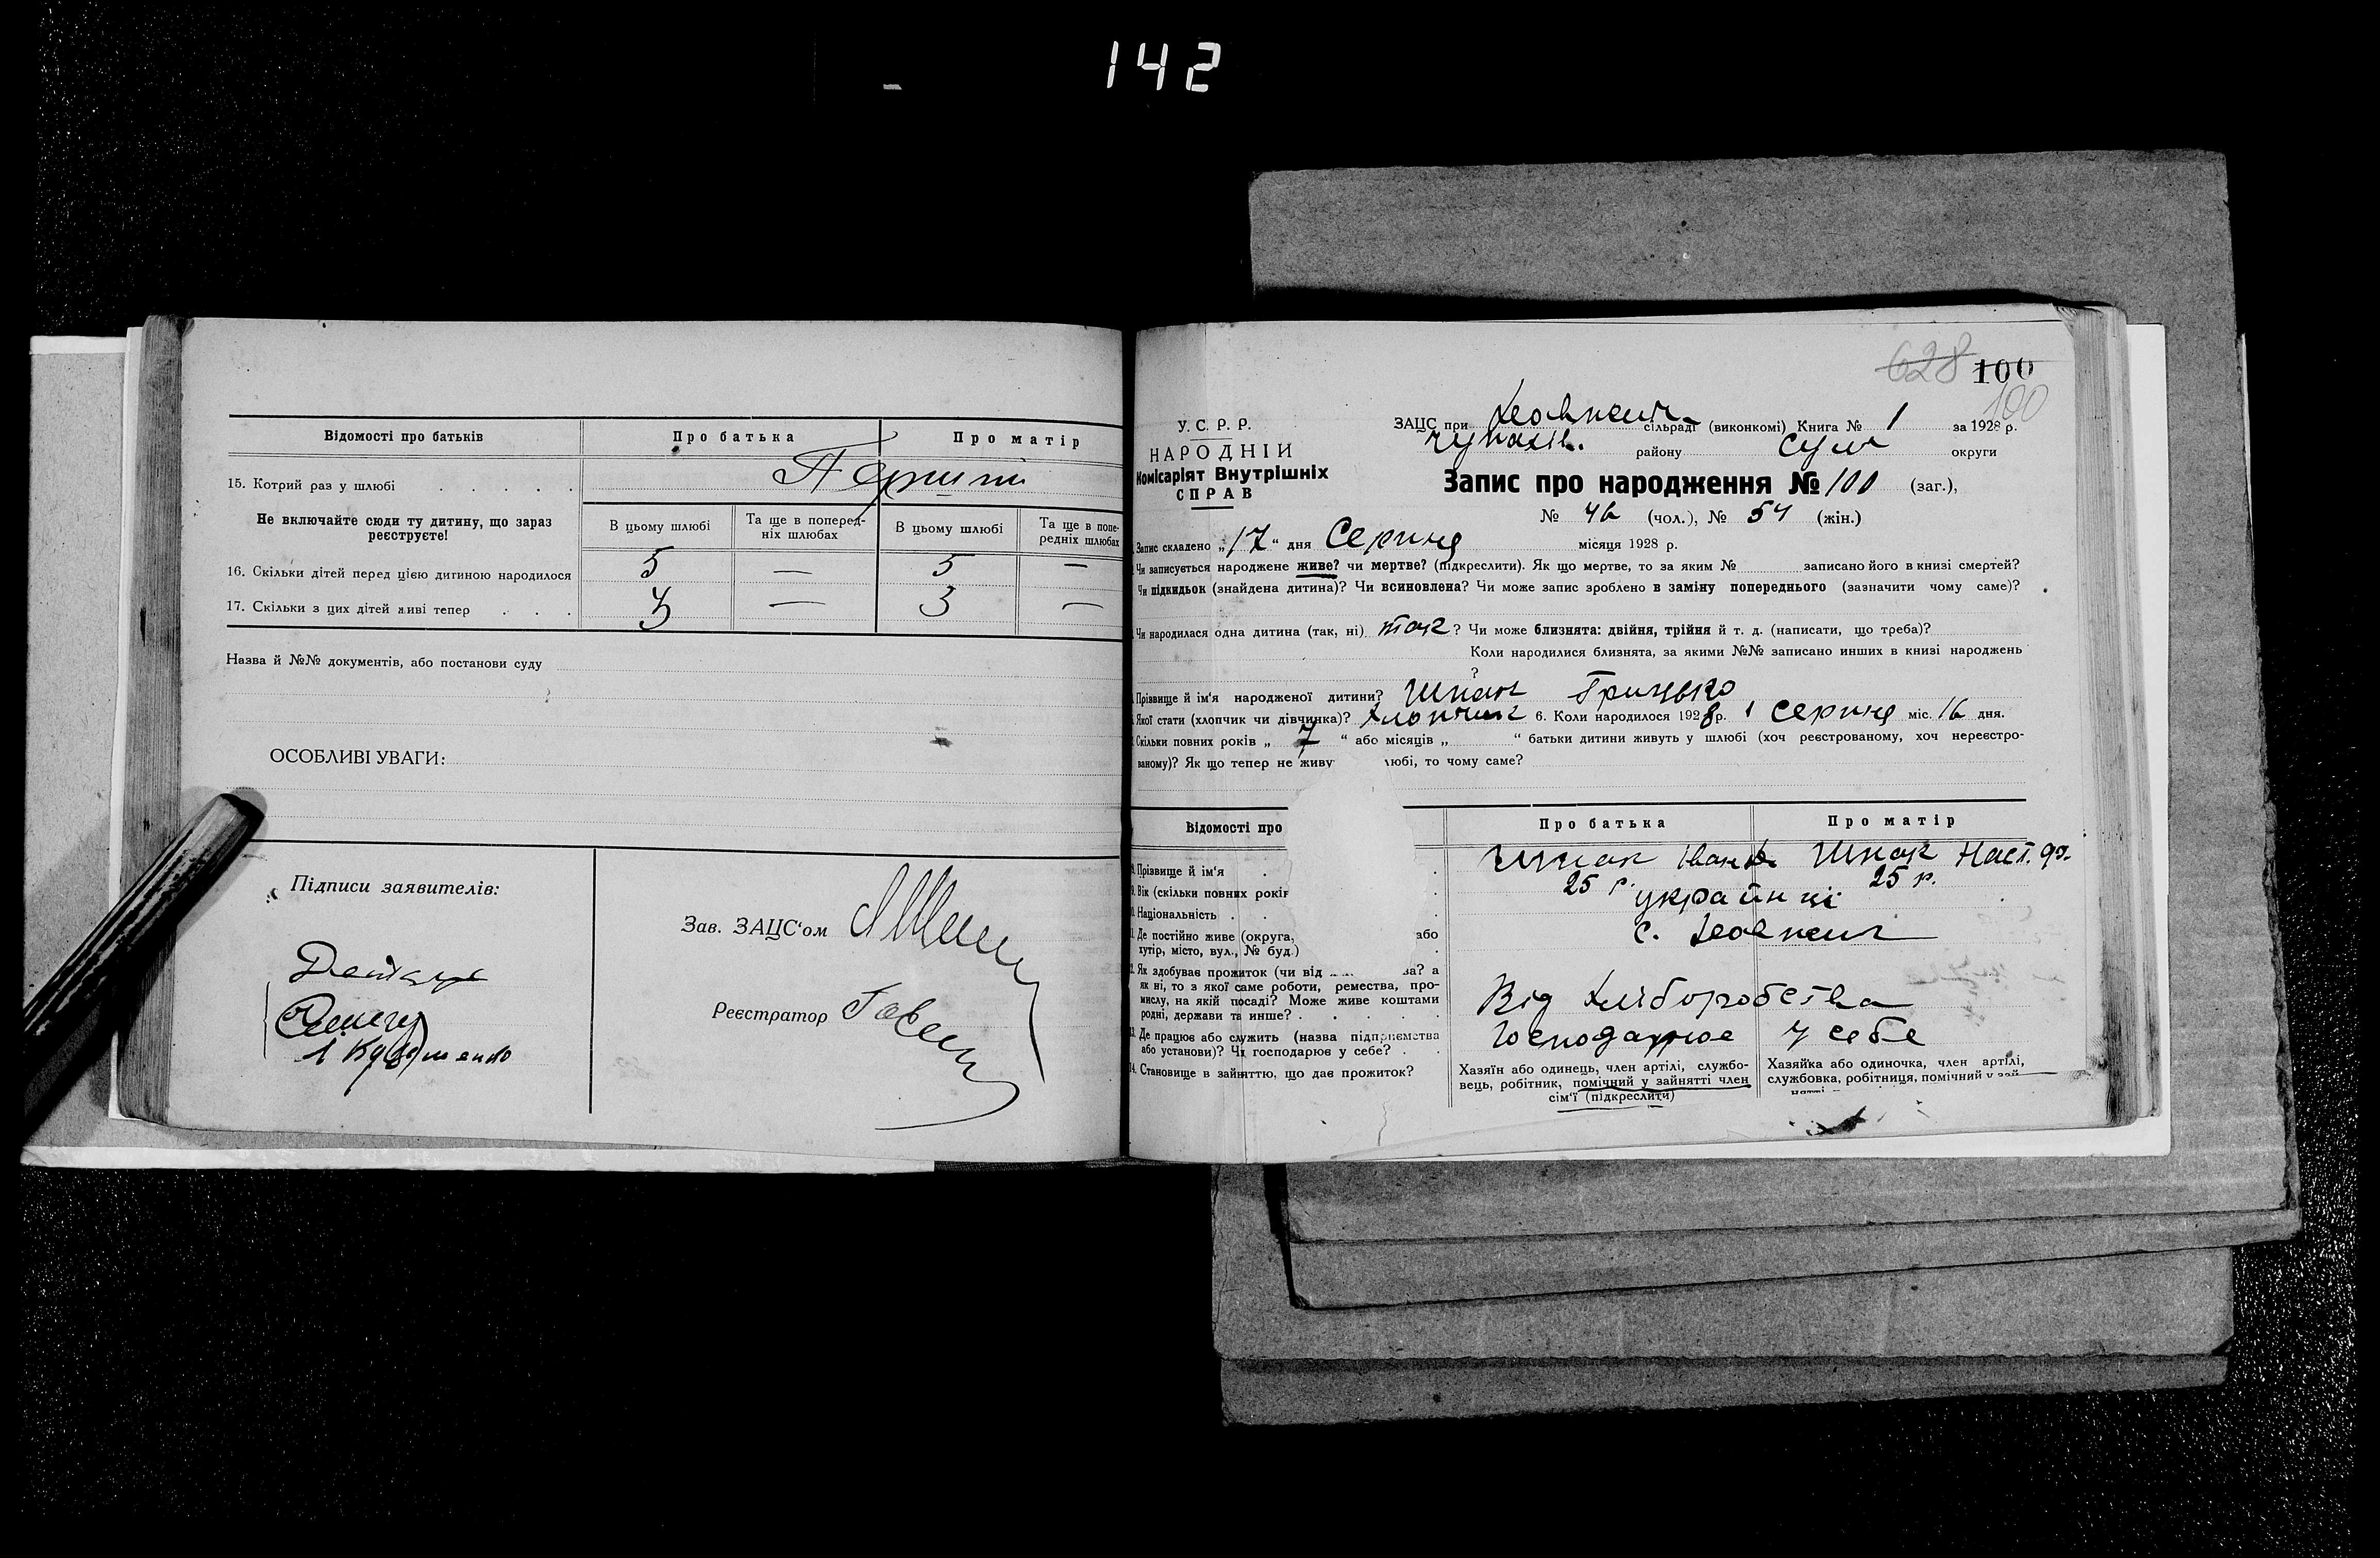 142
Відомості про батьків
Про батька
Про матір
15. Котрий раз у шлюбі . . . . .
Перший
Не включайте сюди ту дитину, що зараз
реєструєте!
В цьому шлюбі
Та ще в поперед-
ніх шлюбах
В цьому шлюбі
Та ще в попе-
редніх шлюбах
16. Скільки дітей перед цією дитиною народилося 5 — 5 —
17. Скільки з цих дітей живі тепер . . . 3 — 3 —
Назва й №№ документів, або постанови суду
ОСОБЛИВІ УВАГИ:
Підписи заявителів:
Зав. ЗАЦС'ом
Реєстратор
628 100
100
У. С. Р. Р.
НАРОДНІЙ
Комісаріят Внутрішніх
СПРАВ
ЗАЦС при сільраді (виконкомі) Книга № 1 за 1928 р.
Чупахів. району Сум округи
Запис про народження № 100 (заг.),
№ 46 (чол.), № 54 (жін.)
Запис складено „17“ дня Серпня місяця 1928 р.
Чи записується народжене живе? чи мертве? (підкреслити). Як що мертве, то за яким № записано його в книзі смертей?
Чи підкидьок (знайдена дитина)? Чи всиновлена? Чи може запис зроблено в заміну попереднього (зазначити чому саме)?
Чи народилася одна дитина (так, ні) так? Чи може близнята: двійня, трійня й т. д. (написати, що треба)?
Коли народилися близнята, за якими №№ записано инших в книзі народжень
?
Прізвище й ім'я народженої дитини? Шпак Грицько
Якої стати (хлопчик чи дівчинка)? Хлопчик 6. Коли народилося 1928 р. Серпня міс. 16 дня.
Скільки повних років „ 7 “ або місяців „ “ батьки дитини живуть у шлюбі (хоч реєстрованому, хоч нереєстро-
ваному)? Як що тепер не живу любі, то чому саме?
Відомості про
Про батька
Про матір
Прізвище й ім'я . . Шпак Іван Шпак Наст.
9. Вік (скільки повних років 25 р. 25 р.
Національність . . . українці
Де постійно живе (округа, або
хутір, місто, вул., № буд.) .
с.
Як здобуває прожиток (чи від ва? а
як ні, то з якої саме роботи, ремества, про-
мислу, на якій посаді? Може живе коштами
родні, держави та инше? . . . . .
Від хліборобства
Де працює або служить (назва підприємства
або установи)? Чи господарює у себе? . .
Господарює у себе
14. Становище в зайняттю, що дає прожиток?
Хазяїн або одинець, член артілі, службо-
вець, робітник, помічний у зайнятті член
сім'ї (підкреслити)
Хазяйка або одиночка, член артілі,
службовка, робітниця, помічний у зай-